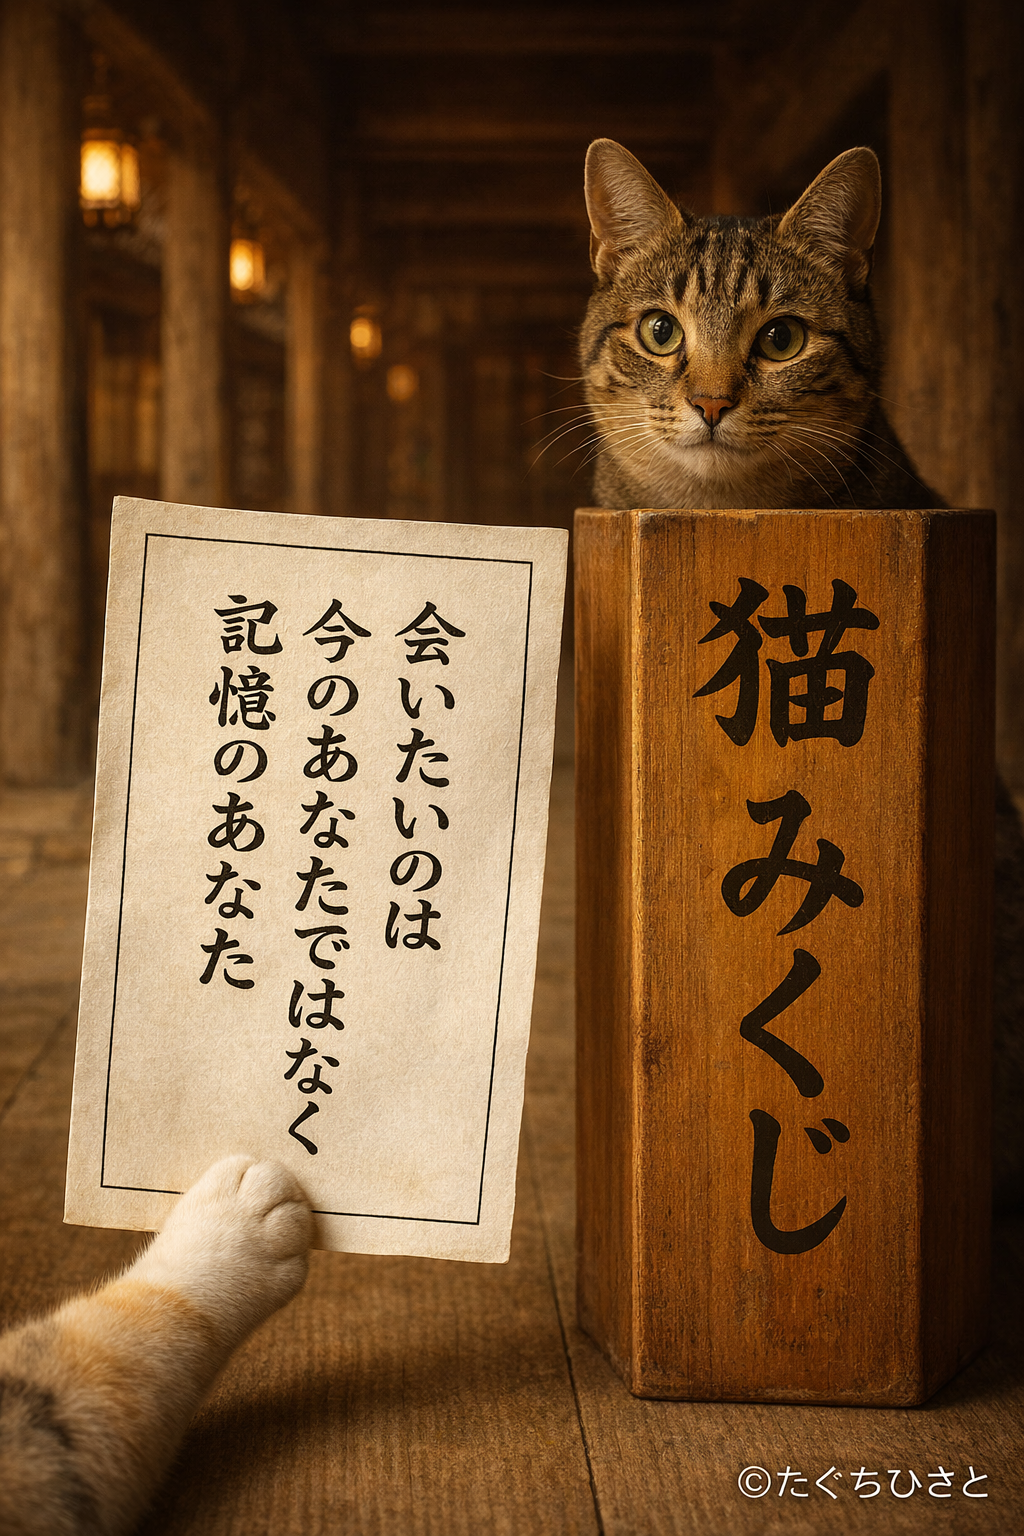 会いたいのは
今のあなたではなく
記憶のあなた
猫みくじ
©たぐちひさと